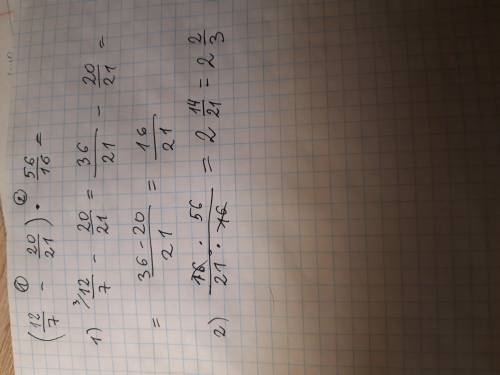 ① ②
(12/7 - 20/21) · 56/16 =
1) ³⁾12/7 - 20/21 = 36/21 - 20/21 =
= (36-20)/21 = 16/21
2) (16 · 56)/(21 · 16) = 2 14/21 = 2 2/3